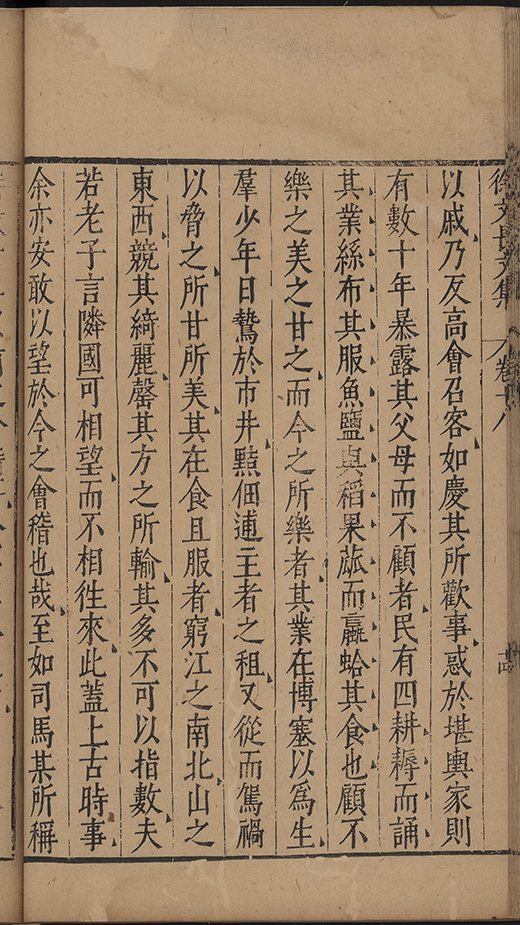 徐文長文集 卷十八 十四
以戚乃反高會召客如慶其所歡事惑於堪輿家則
有數十年暴露其父母而不顧者民有四耕耨而誦
其業絲布其服魚鹽與稻果蓏而蠃蛤其食也顧不
樂之美之甘之而今之所樂者其業在博塞以爲生
羣少年日鶩於市井黠佃逋主者之租又從而駕禍
以脅之所甘所美其在食且服者窮江之南北山之
東西競其綺麗罄其方之所輸其多不可以指數夫
若老子言隣國可相望而不相徃來此蓋上古時事
余亦安敢以望於今之會稽也哉至如司馬某所稱